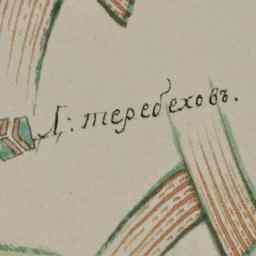 Д: теребеховъ.